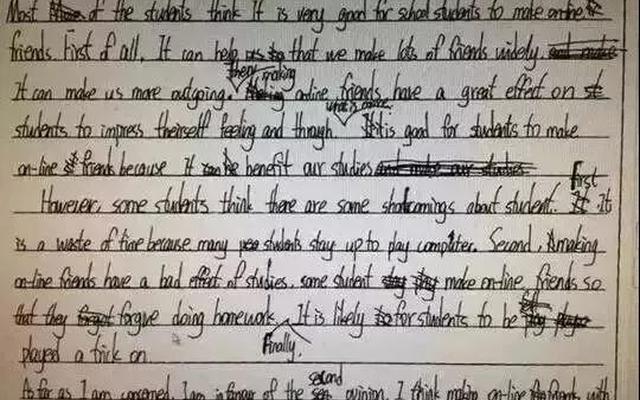 Most of the students think It is very good for school students to make on-line
friends. First of all, It can help that we make lots of friends widely.
It can make us more outgoing. then, making online friends have a great effect on
students to impress theirself feeling and through. what is more, It is good for students to make
on-line friends because It can benefit our studies
However, some students think there are some shortcomings about student. First It
is a waste of time because many students stay up to play computer. Second, making
on-line friends have a bad effect of studies. some student make on-line friends so
that they forgue doing homework. Finally. It is likely for students to be
played a trick on.
As far as I am concerned, I am in favor of the second opinion. I think making on-line friends with